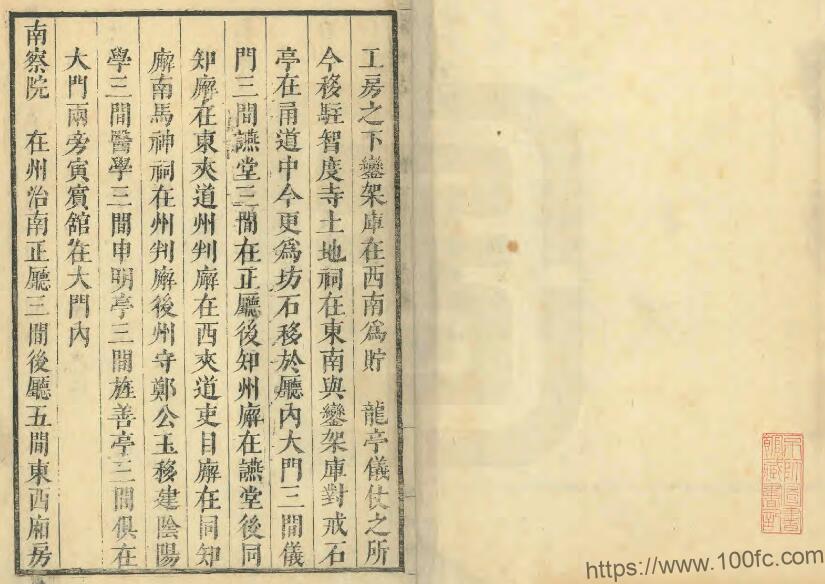 工房之下鑾架庫在西南為貯　龍亭儀仗之所
今移駐智度寺土地祠在東南與鑾架庫對戒石
亭在甬道中今更為坊石移於廳內大門三間儀
門三間讌堂三間在正廳後知州廨在讌堂後同
知廨在東夾道州判廨在西夾道吏目廨在同知
廨南馬神祠在州判廨後州守鄭公玉移建陰陽
學三間醫學三間申明亭三間旌善亭三間俱在
大門兩旁寅賓館在大門內
南察院　在州治南正廳三間後廳五間東西廂房
京師圖書
館藏書印
https://www.100fc.com